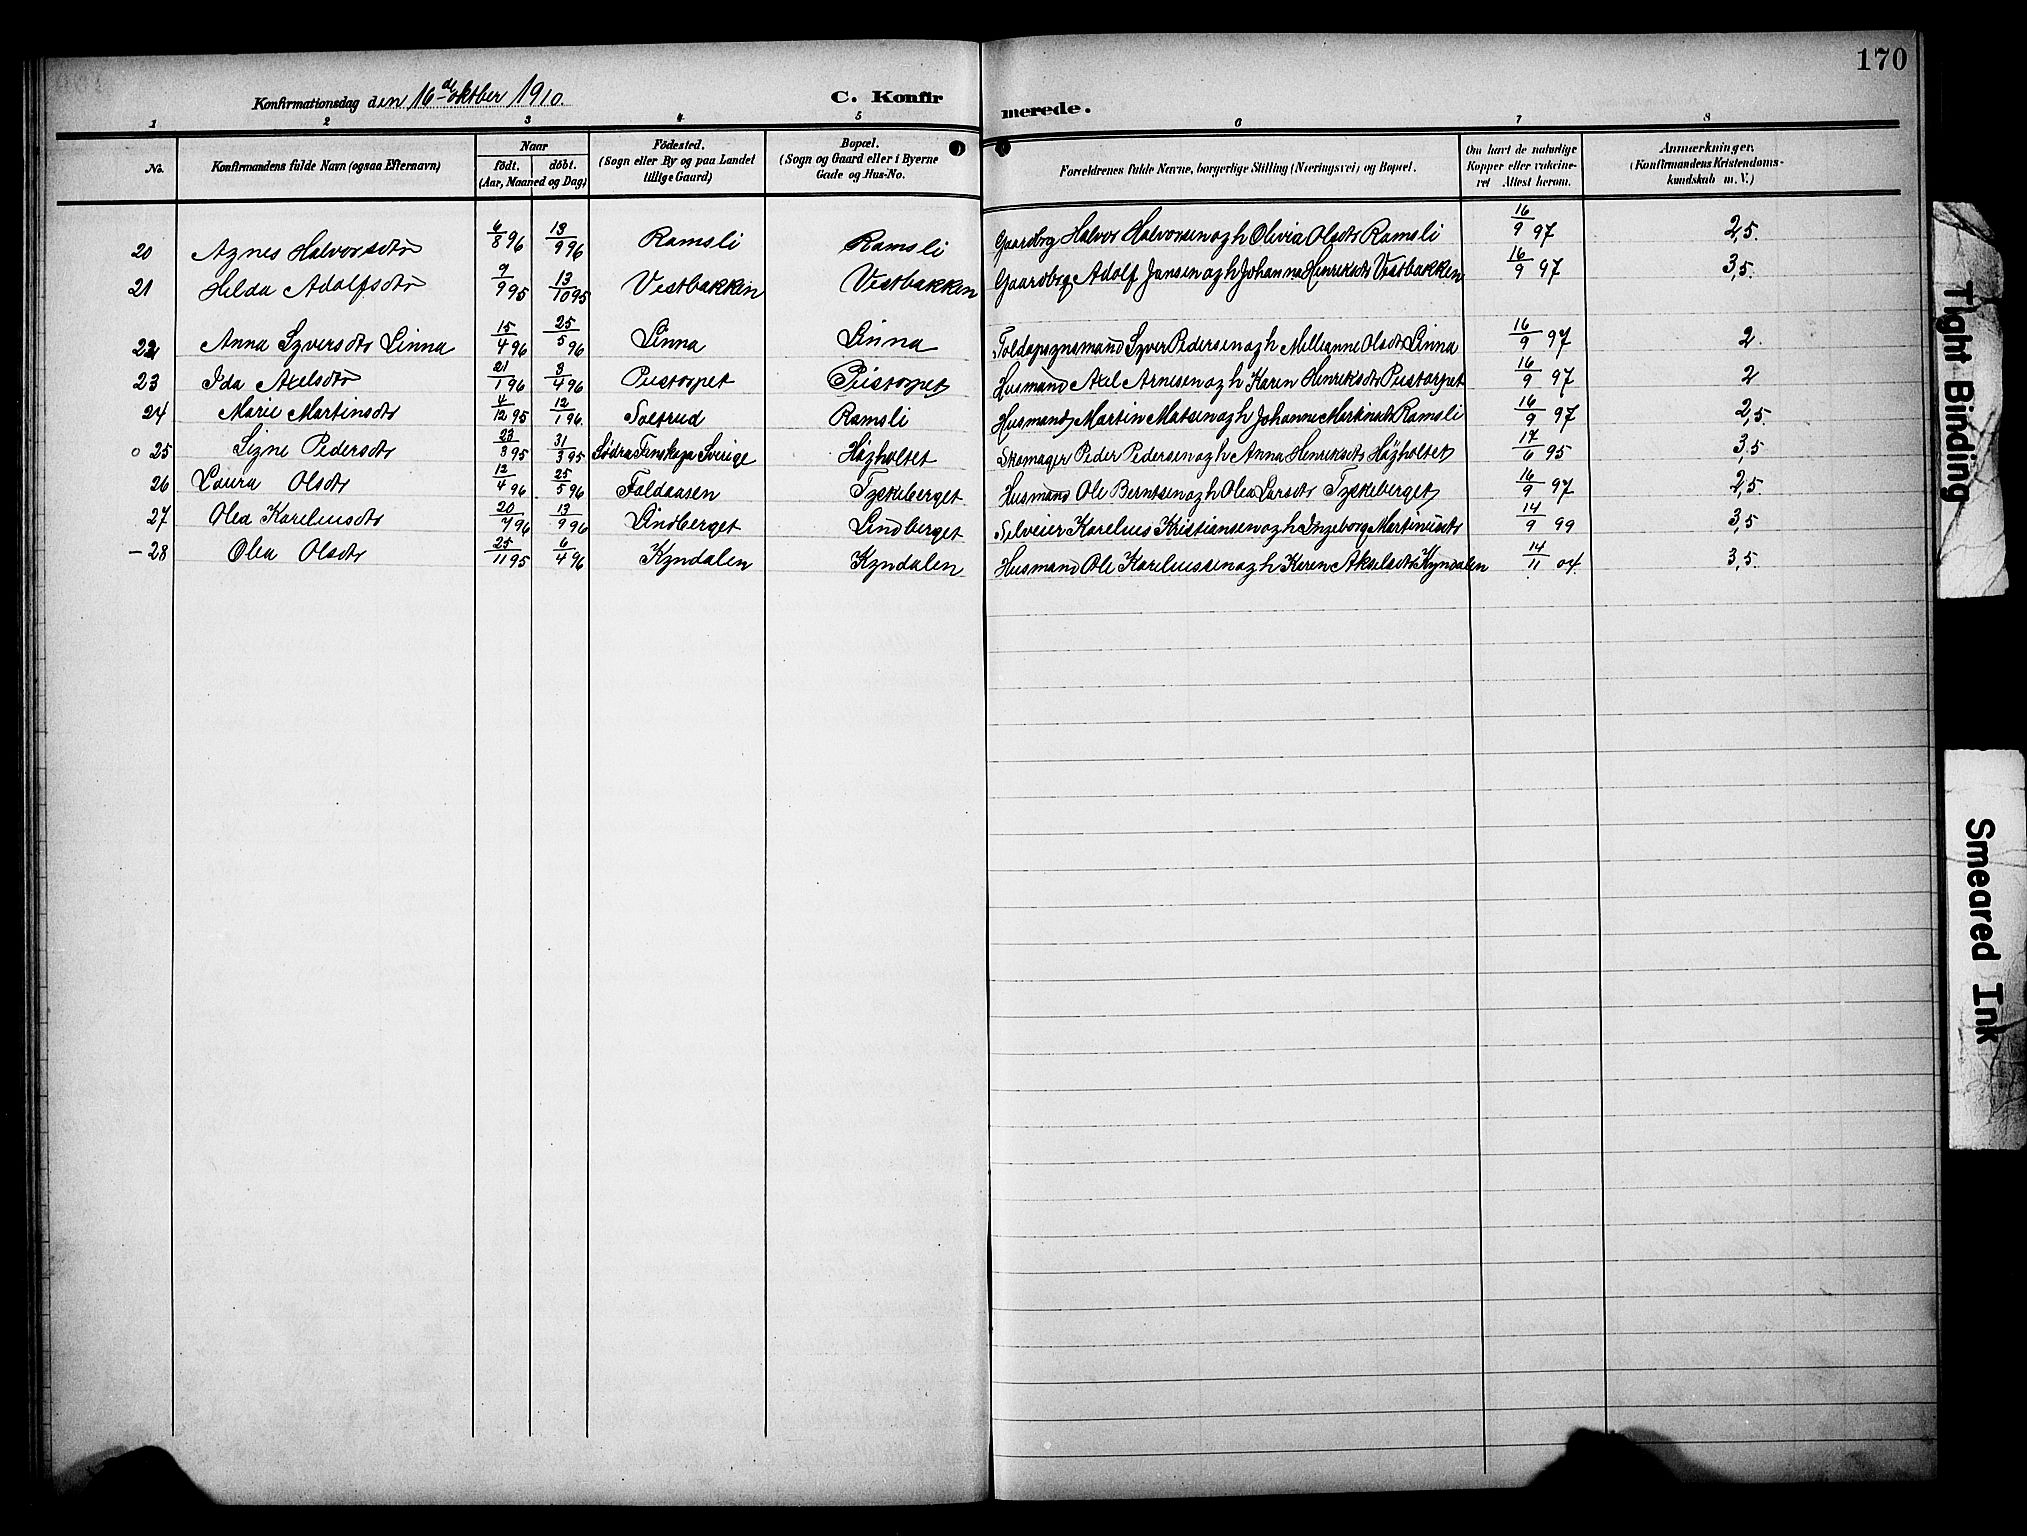 170
Konfirmationsdag den 16de oktber 1910.
C. Konfirmerede.
1 2 3 4 5 6 7 8
No. Konfirmandens fulde Navn (ogsaa Efternavn) Naar født. døbt. (Aar, Maaned og Dag) Fødested. (Sogn eller By og paa Landet tillige Gaard) Bopæl. (Sogn og Gaard eller i Byerne Gade og Hus-No. Forældrenes fulde Navne, borgerlige Stilling (Næringsvei) og Bopæl. Om havt de naturlige Kopper eller vakcineret Attest herom. Anmærkninger. (Konfirmandens Kristendomskundskab m. V.)
20 Agnes Halvorsdtr 6/8 96 13/9 96 Ramsli Ramsli Gaardbrg Halvor Halvorsen og h Olivia Olsdtr Ramsli 16/9 97 2,5.
21 Helda Adolfsdtr 9/9 95 13/10 95 Vestbakken Vestbakken Gaardbrg Adolf Jansen og h Johanna Henriksdtr Vestbakken 16/9 97 3,5.
22 Anna Syversdtr Linna 15/4 96 25/5 96 Linna Linna Toldopsynsmand Syver Pedersen og h Millianne Olsdtr Linna 16/9 97 2.
23 Ida Axelsdtr 21/1 96 3/4 96 Pustorpet Pustorpet Husmand Axel Arnesen og h Karen Henriksdtr Pustorpet 16/9 97 2
24 Marie Martinsdtr 4/12 95 12/1 96. Ramsli Husmand Martin Matsen og h Johanne Martinsdtr Ramsli 16/9 97 2,5.
o 25 Signe Pedersdtr 23/3 95 31/3 95 Södra Finskoga Sverige Högholtet Skomager Peder Pedersen og h Anna Henriksdtr Högholtet 17/6 95 3,5
26 Laura Olsdtr 12/4 96 25/5 96 Foldaasen Tyskeberget Husmand Ole Berntsen og h Olea Larsdtr Tyskeberget 16/9 97 2,5
27 Olea Kareliusdtr 20/7 96 13/9 96 Lindberget Lindberget Selveier Karelius Kristiansen og h Ingeborg Martinusdtr 14/9 99 3,5
- 28 Olea Olsdtr 25/11 95 6/4 96 Kyndalen Kyndalen Husmand Ole Kareliussen og h Karen Akselsdtr Kyndalen 14/11 04. 3,5.
Tight Binding
Smeared Ink